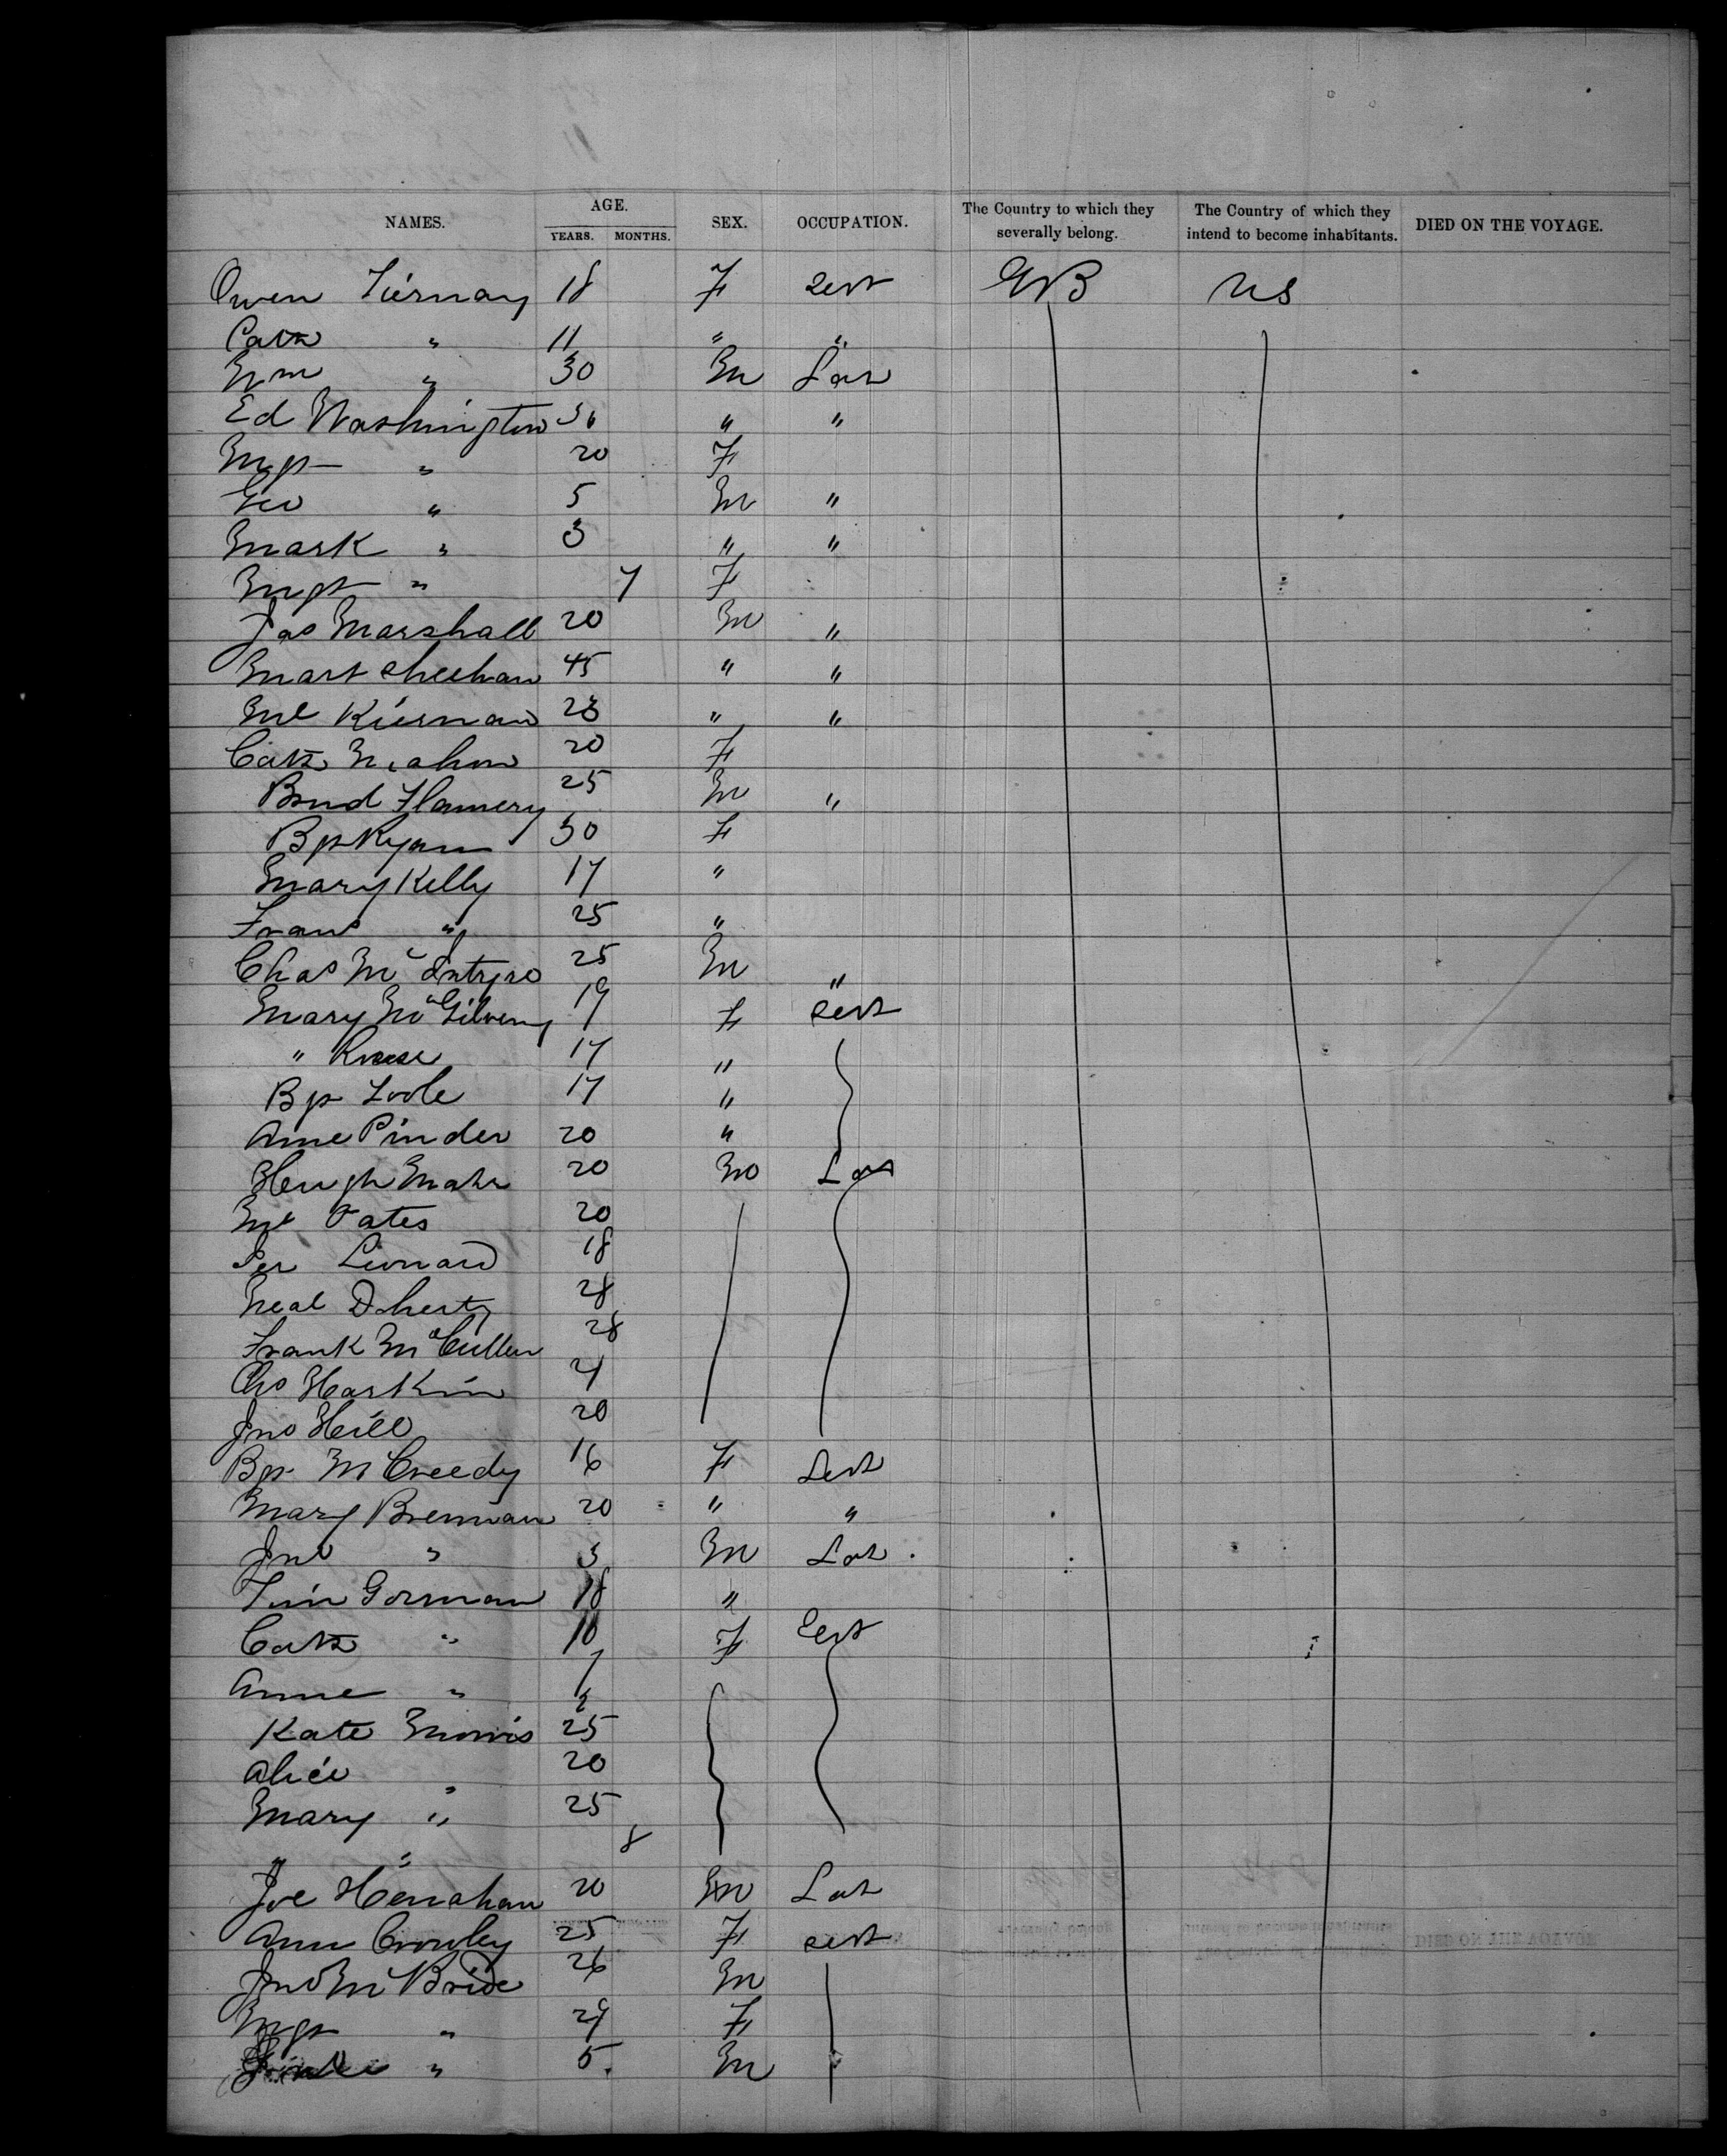 NAMES. AGE. YEARS. MONTHS. SEX. OCCUPATION. The Country to which they severally belong. The Country of which they intend to become inhabitants. DIED ON THE VOYAGE.
Owen Tiernay 18 F Servt GB US
Cath " 11 " "
Wm " 30 M Lab
Ed Washington 36 " "
Mgt " 20 F
Geo " 5 M "
Mark " 3 " "
Mgt " 7 F
Jas Marshall 20 M "
Mart Sheehan 45 " "
Ml Kiernan 28 " "
Cath Mcahon 20 F
Brnd Flannery 25 M "
Bgt Ryan 30 F
Mary Kelly 17 "
Frans " 25 "
Chas McIntyre 25 M "
Mary McGilvery 19 F Servt
" Rose 17 "
Bgt Toole 17 "
Anne Pinder 20 "
Hugh Maher 20 M Lab
Ml Oates 20
Ter Leonard 18
Neal Doherty 28
Frank McCullen 28
Chs Harkin 21
Jno Hill 20
Bgt McCreedy 16 F Servt
Mary Brennan 20 " "
Jno " 3 M Lab
Tim Gorman 18 "
Cath " 10 F Servt
Anne " 7
Kate Morris 25
Alice " 20
Mary " 25
" " 8
Joe Henahan 20 M Lab
Ann Crowley 25 F Servt
Jno McBride 26 M
Mgt " 29 F
" 5 M